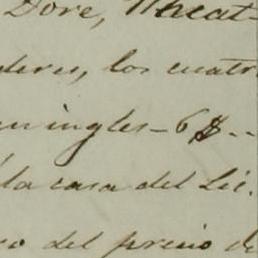 Dore, Wheat-
deres, los cuatr
en ingles - 6 $ --
á la casa del Lic.
so del precio de